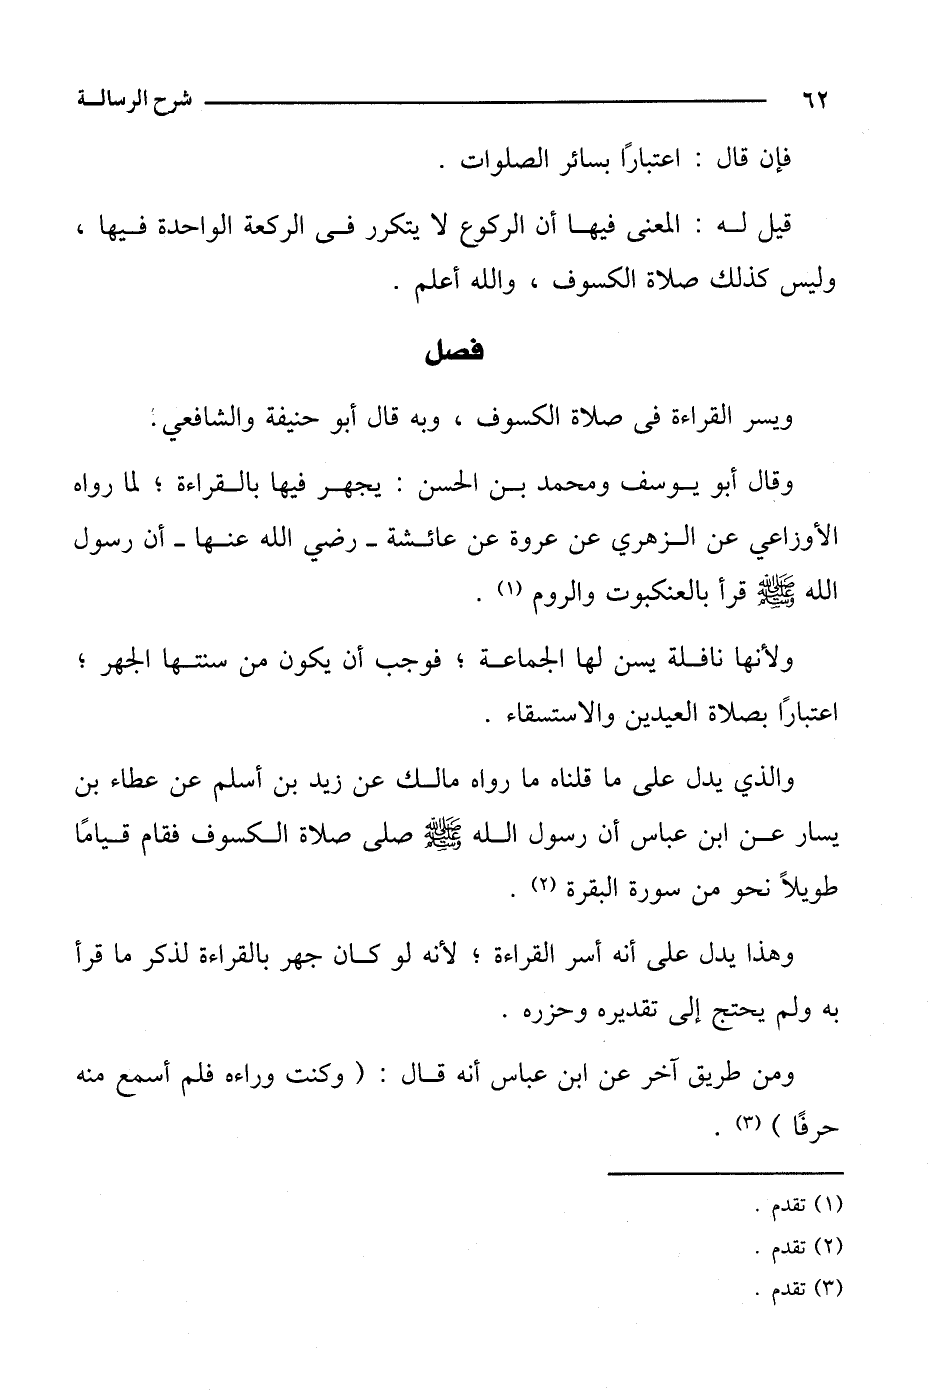 ٦٢ شرح الرسالة
فإن قال : اعتبارًا بسائر الصلوات .
قيل له : المعنى فيها أن الركوع لا يتكرر فى الركعة الواحدة فيها ،
وليس كذلك صلاة الكسوف ، والله أعلم .
فصل
ويسر القراءة فى صلاة الكسوف ، وبه قال أبو حنيفة والشافعي .
وقال أبو يوسف ومحمد بن الحسن : يجهر فيها بالقراءة ؛ لما رواه
الأوزاعي عن الزهري عن عروة عن عائشة ـ رضي الله عنها ـ أن رسول
الله ﷺ قرأ بالعنكبوت والروم (١) .
ولأنها نافلة يسن لها الجماعة ؛ فوجب أن يكون من سنتها الجهر ؛
اعتبارًا بصلاة العيدين والاستسقاء .
والذي يدل على ما قلناه ما رواه مالك عن زيد بن أسلم عن عطاء بن
يسار عن ابن عباس أن رسول الله ﷺ صلى صلاة الكسوف فقام قيامًا
طويلاً نحو من سورة البقرة (٢) .
وهذا يدل على أنه أسر القراءة ؛ لأنه لو كان جهر بالقراءة لذكر ما قرأ
به ولم يحتج إلى تقديره وحزره .
ومن طريق آخر عن ابن عباس أنه قال : ( وكنت وراءه فلم أسمع منه
حرفًا ) (٣) .
(١) تقدم .
(٢) تقدم .
(٣) تقدم .